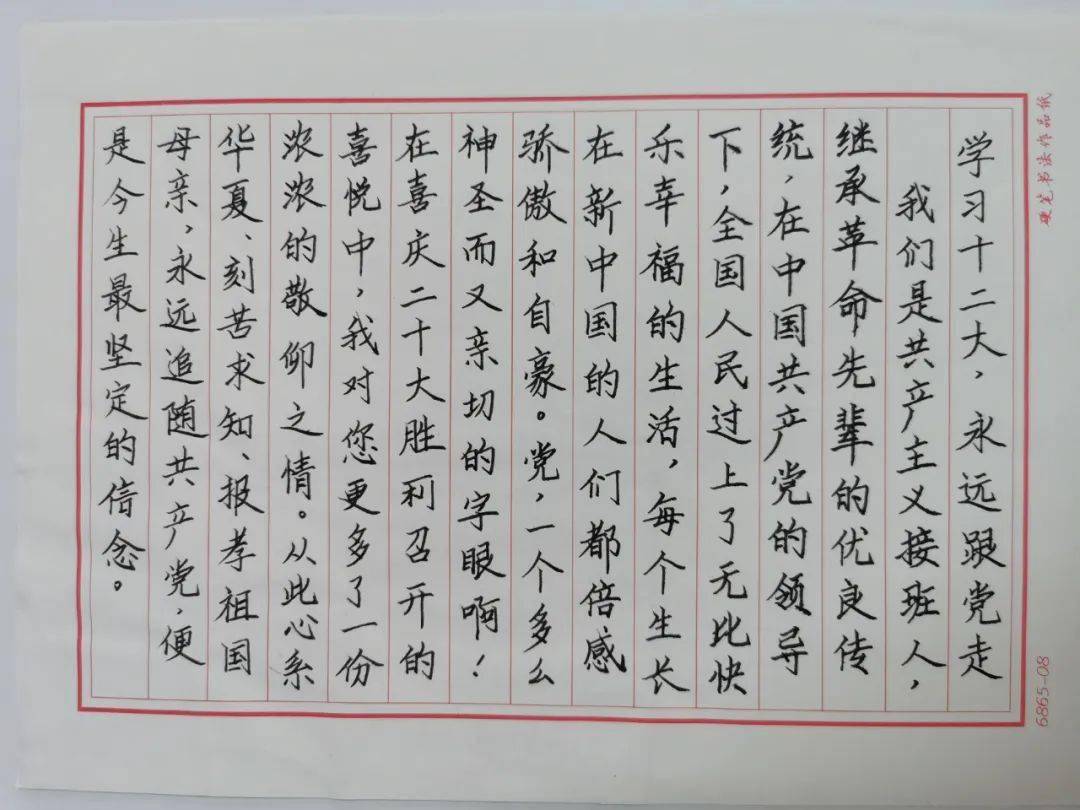 学习十二大，永远跟党走
我们是共产主义接班人，
继承革命先辈的优良传
统，在中国共产党的领导
下，全国人民过上了无比快
乐幸福的生活，每个生长
在新中国的人们都倍感
骄傲和自豪。党，一个多么
神圣而又亲切的字眼啊！
在喜庆二十大胜利召开的
喜悦中，我对您更多了一份
浓浓的敬仰之情。从此心系
华夏、刻苦求知、报孝祖国
母亲，永远追随共产党，便
是今生最坚定的信念。
硬笔书法作品纸
6865-08